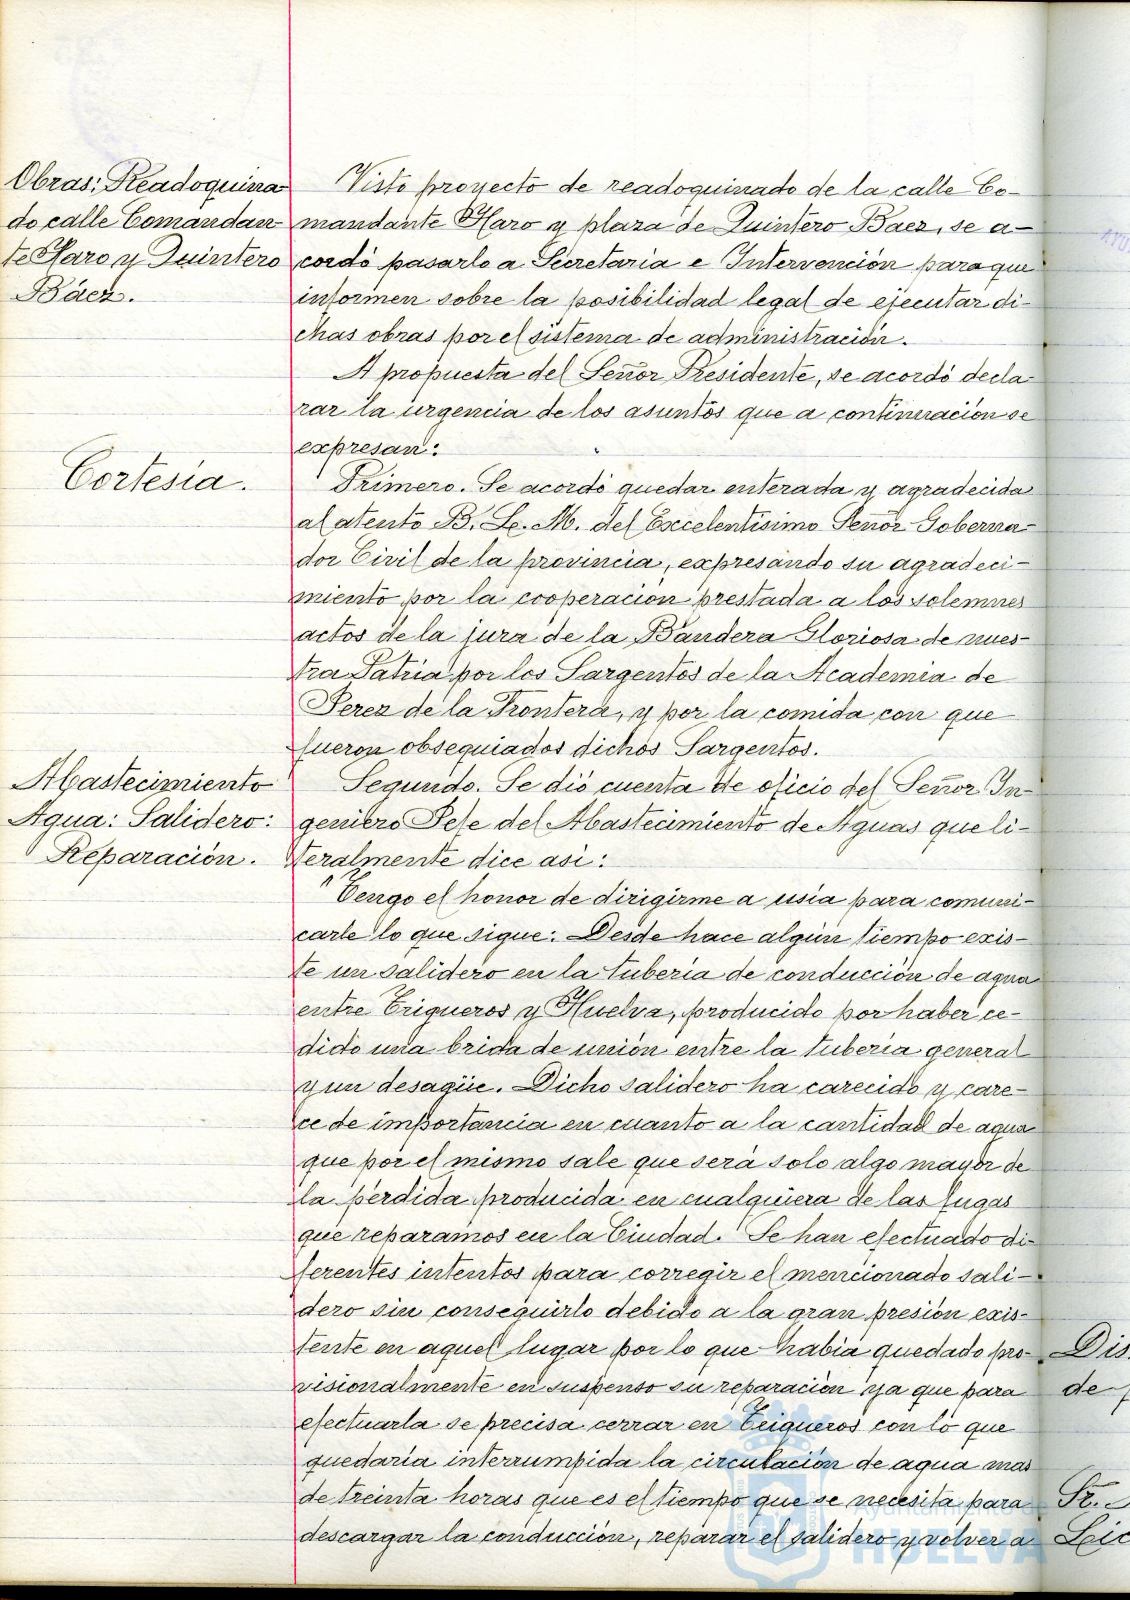 Obras: Readoquina
do calle Comandan-
te Haro y Quintero
Báez.
Visto proyecto de readoquinado de la calle Co-
mandante Haro y plaza de Quintero Baez, se a-
cordó pasarlo a Secretaría e Intervención para que
informen sobre la posibilidad legal de ejecutar di-
chas obras por el sistema de administración.
A propuesta del Señor Presidente, se acordó decla-
rar la urgencia de los asuntos que a continuación se
expresan:
Cortesía.
Primero. Se acordó quedar enterada y agradecida
al atento B. L. M. del Excelentísimo Señor Goberna-
dor Civil de la provincia, expresando su agradeci-
miento por la cooperación prestada a los solemnes
actos de la jura de la Bandera Gloriosa de nues-
tra Patria por los Sargentos de la Academia de
Jerez de la Frontera, y por la comida con que
fueron obsequiados dichos Sargentos.
Abastecimiento
Agua: Salidero:
Reparación.
Segundo. Se dió cuenta de oficio del Señor In-
geniero Jefe del Abastecimiento de Aguas que li-
teralmente dice así:
"Tengo el honor de dirigirme a usía para comuni-
carle lo que sigue: Desde hace algún tiempo exis-
te un salidero en la tubería de conducción de agua
entre Trigueros y Huelva, producido por haber ce-
dido una brida de unión entre la tubería general
y un desagüe. Dicho salidero ha carecido y care-
ce de importancia en cuanto a la cantidad de agua
que por el mismo sale que será solo algo mayor de
la pérdida producida en cualquiera de las fugas
que reparamos en la Ciudad. Se han efectuado di-
ferentes intentos para corregir el mencionado sali-
dero sin conseguirlo debido a la gran presión exis-
tente en aquel lugar por lo que había quedado pro-
visionalmente en suspenso su reparación ya que para
efectuarla se precisa cerrar en Trigueros con lo que
quedaría interrumpida la circulación de agua mas
de treinta horas que es el tiempo que se necesita para
descargar la conducción, reparar el salidero y volver a
Dis.
de
Sr.
Lic
Ayuntamiento de
HUELVA